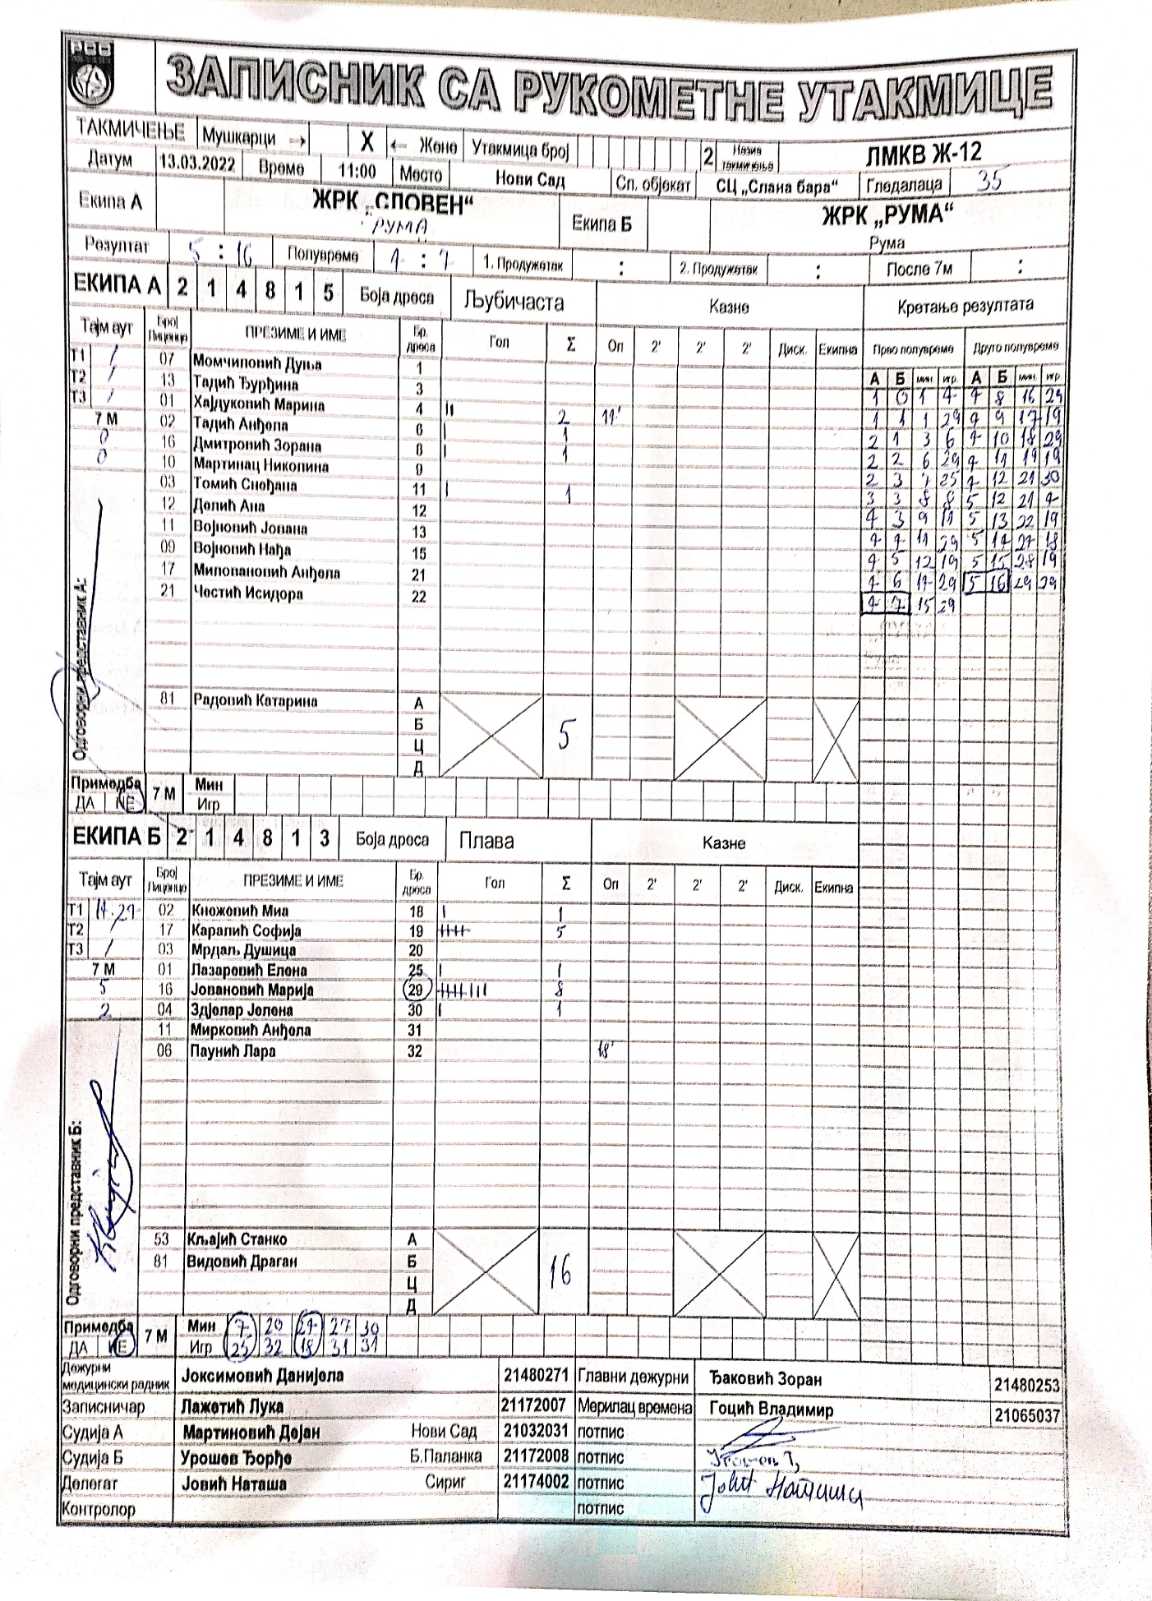 ЗАПИСНИК СА РУКОМЕТНЕ УТАКМИЦЕ
ТАКМИЧЕЊЕ Мушкарци → X ← Жене Утакмица број 2 Назив такмичења ЛМКВ Ж-12
Датум 13.03.2022 Време 11:00 Место Нови Сад Сп. објекат СЦ „Слана бара“ Гледалаца 35
Екипа А ЖРК „СЛОВЕН“ Екипа Б ЖРК „РУМА“
РУМА Рума
Резултат 5 : 16 Полувреме 4 : 7 1. Продужетак : 2. Продужетак : После 7м :
ЕКИПА А 2 1 4 8 1 5 Боја дреса Љубичаста Казне Кретање резултата
Тајм аут Број Лиценце ПРЕЗИМЕ И ИМЕ Бр. дреса Гол Σ Оп 2' 2' 2' Диск. Екипна Прво полувреме Друго полувреме
А Б мин игр А Б мин игр
Т1 / 07 Момчиловић Дуња 1
Т2 / 13 Тадић Ђурђина 3
Т3 / 01 Хајдуковић Марина 4 II 2 11'
7 М 02 Тадић Анђела 6 I 1
0 16 Дмитровић Зорана 8 I 1
0 10 Мартинац Николина 9
03 Томић Снежана 11 I 1
12 Делић Ана 12
11 Војновић Јована 13
09 Војновић Нађа 15
17 Миловановић Анђела 21
21 Честић Исидора 22
1 0 1 4 4 8 16 29
1 1 1 29 4 9 17 19
2 1 3 6 4 10 18 29
2 2 6 29 4 11 19 19
2 3 7 25 4 12 21 30
3 3 8 8 5 12 21 4
4 3 9 11 5 13 22 19
4 4 11 29 5 14 27 18
4 5 12 19 5 15 28 19
4 6 14 29 5 16 29 29
4 7 15 29
Одговорни представник А:
81 Радовић Катарина А
Б
5
Ц
Д
Примедба ДА НЕ 7 М Мин
Игр
ЕКИПА Б 2 1 4 8 1 3 Боја дреса Плава Казне
Тајм аут Број Лиценце ПРЕЗИМЕ И ИМЕ Бр. дреса Гол Σ Оп 2' 2' 2' Диск. Екипна
Т1 02 Кнежевић Миа 18 I 1
Т2 / 17 Каралић Софија 19 IIIII 5
Т3 / 03 Мрдаљ Душица 20
7 М 01 Лазаревић Елена 25 I 1
5 16 Јовановић Марија 29 IIIII III 8
2 04 Здјелар Јелена 30 I 1
11 Мирковић Анђела 31
06 Паунић Лара 32 18'
Одговорни представник Б:
53 Кљајић Станко А
81 Видовић Драган Б
16
Ц
Д
Примедба ДА НЕ 7 М Мин 7 20 27 27 30
Игр 25 32 18 31 31
Дежурни медицински радник Јоксимовић Данијела 21480271 Главни дежурни Ђаковић Зоран 21480253
Записничар Лажетић Лука 21172007 Мерилац времена Гоцић Владимир 21065037
Судија А Мартиновић Дејан Нови Сад 21032031 потпис
Судија Б Урошев Ђорђе Б.Паланка 21172008 потпис
Делегат Јовић Наташа Сириг 21174002 потпис Јовић Наташа
Контролор потпис